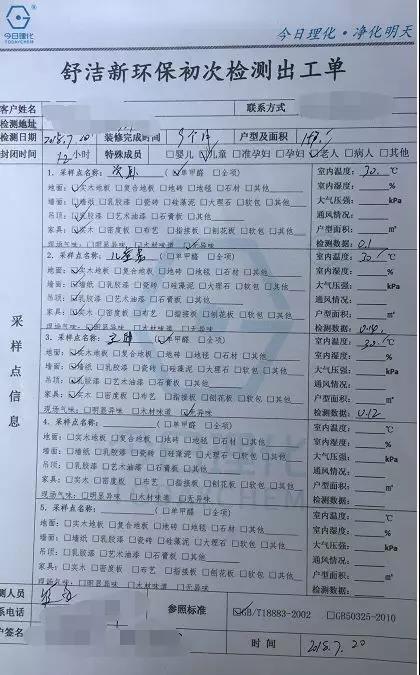 今日理化
TODAYCHEM
今日理化·净化明天
舒洁新环保初次检测出工单
客户姓名 联系方式
检测地址
检测日期 2018.7.20 装修完成时间 户型及面积
封闭时间 12小时 特殊成员 □婴儿 ☑儿童 □准孕妇 □孕妇 ☑老人 □病人 □其他
采样点信息
1. 采样点名称: 次卧 (☑单甲醛 □全项) 室内温度: 30 ℃
地面: ☑实木地板 □复合地板 □地砖 □地毯 □石材 □其他 室内湿度: %
墙面: ☑墙纸 □乳胶漆 □瓷砖 □硅藻泥 □大理石 □其他 大气压强: kPa
吊顶: ☑乳胶漆 □艺术油漆 □石膏板 □其他 通风情况:
家具: ☑实木 □密度板 □布艺 □指接板 □刨花板 □软包 □其他 户型面积: m²
现场气味: □明显异味 □木材味道 ☑无异味 检测数据: 0.1
2. 采样点名称: 儿童房 (☑单甲醛 □全项) 室内温度: 30 ℃
地面: ☑实木地板 □复合地板 □地砖 □地毯 □石材 □其他 室内湿度: %
墙面: ☑墙纸 □乳胶漆 □瓷砖 □硅藻泥 □大理石 □其他 大气压强: kPa
吊顶: ☑乳胶漆 □艺术油漆 □石膏板 □其他 通风情况:
家具: ☑实木 □密度板 □布艺 □指接板 □刨花板 □软包 □其他 户型面积: m²
现场气味: ☑明显异味 □木材味道 □无异味 检测数据: 0.14
3. 采样点名称: 主卧 (☑单甲醛 □全项) 室内温度: 30 ℃
地面: ☑实木地板 □复合地板 □地砖 □地毯 □石材 □其他 室内湿度: %
墙面: ☑墙纸 □乳胶漆 □瓷砖 □硅藻泥 □大理石 □其他 大气压强: kPa
吊顶: ☑乳胶漆 □艺术油漆 □石膏板 □其他 通风情况:
家具: ☑实木 □密度板 □布艺 □指接板 □刨花板 □软包 □其他 户型面积: m²
现场气味: □明显异味 □木材味道 ☑无异味 检测数据: 0.12
4. 采样点名称: (□单甲醛 □全项) 室内温度: ℃
地面: □实木地板 □复合地板 □地砖 □地毯 □石材 □其他 室内湿度: %
墙面: □墙纸 □乳胶漆 □瓷砖 □硅藻泥 □大理石 □其他 大气压强: kPa
吊顶: □乳胶漆 □艺术油漆 □石膏板 □其他 通风情况:
家具: □实木 □密度板 □布艺 □指接板 □刨花板 □软包 □其他 户型面积: m²
现场气味: □明显异味 □木材味道 □无异味 检测数据:
5. 采样点名称: (□单甲醛 □全项) 室内温度: ℃
地面: □实木地板 □复合地板 □地砖 □地毯 □石材 □其他 室内湿度: %
墙面: □墙纸 □乳胶漆 □瓷砖 □硅藻泥 □大理石 □其他 大气压强: kPa
吊顶: □乳胶漆 □艺术油漆 □石膏板 □其他 通风情况:
家具: □实木 □密度板 □布艺 □指接板 □刨花板 □软包 □其他 户型面积: m²
现场气味: □明显异味 □木材味道 □无异味 检测数据:
测人员 参照标准 ☑GB/T18883-2002 □GB50325-2010
系电话
户签名 时间 2018.7.20